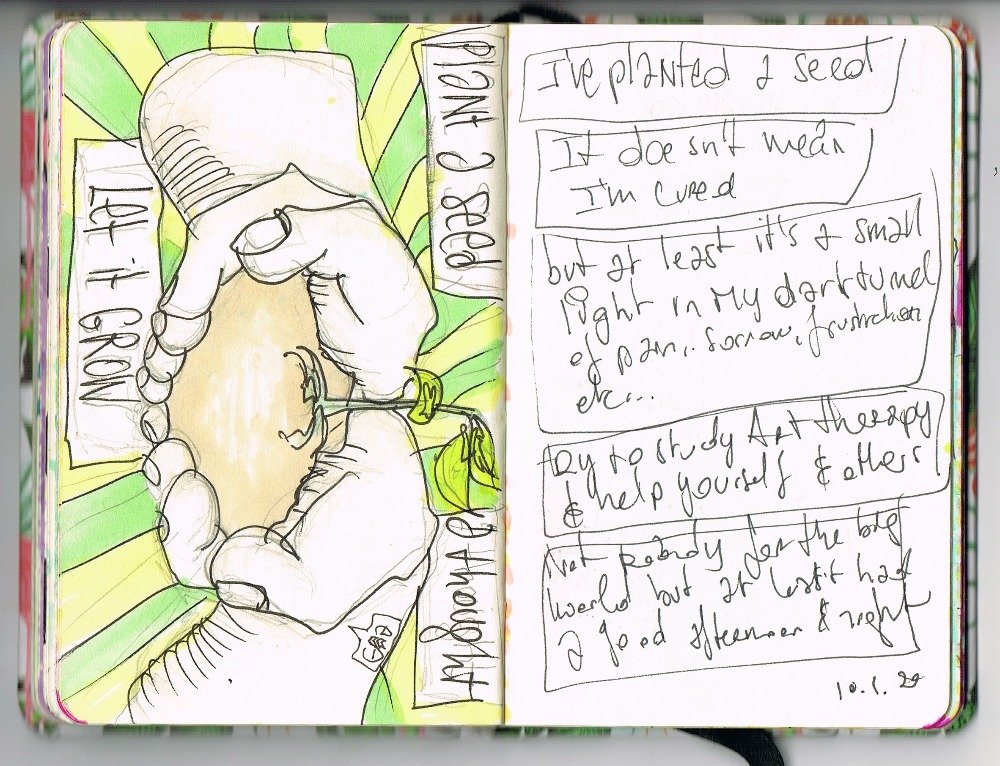 PLANT a seed
a thought
LET it GROW
I've planted a seed
It doesn't mean
I'm cured
but at least it's a small
light in my dark tunnel
of pain, sorrow, frustration
etc...
try to study Art therapy
& help yourself & others
for the big
world but at
a good afternoon & night